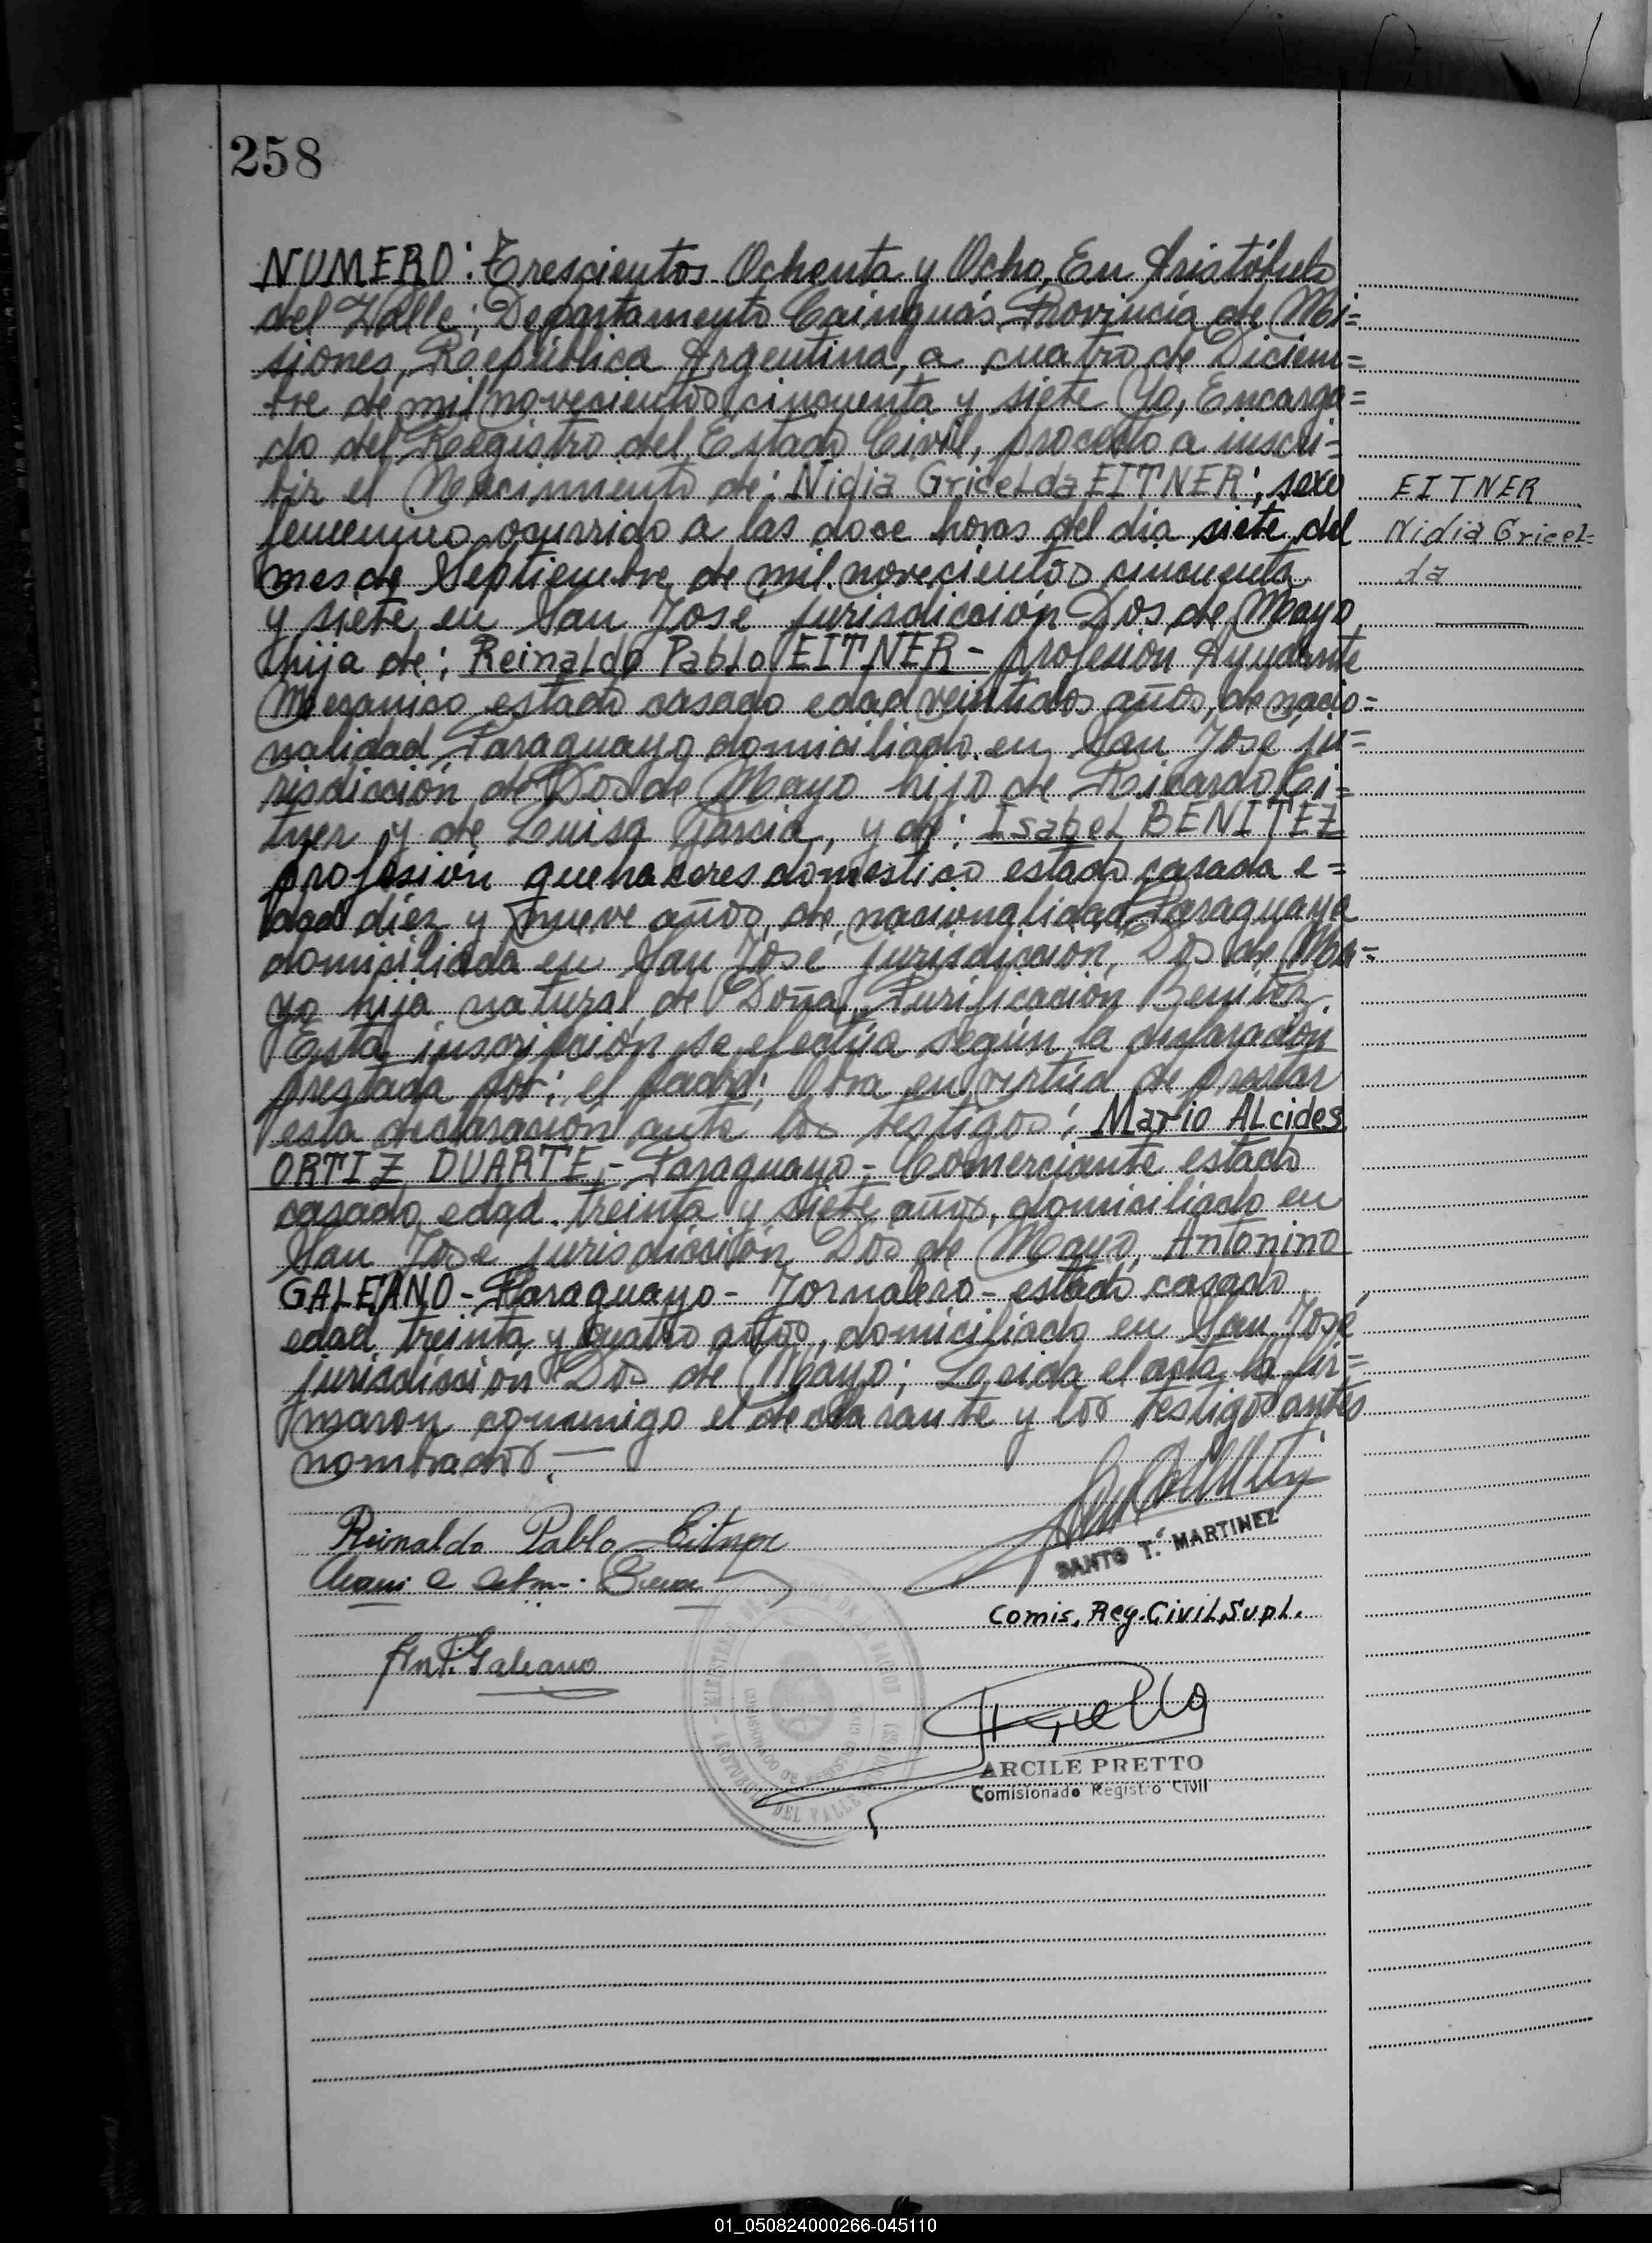 258
NUMERO: Trescientos Ochenta y Ocho, En Aristóbulo
del Valle; Departamento Cainguás Provincia de Mi=
siones, República Argentina, a cuatro de Diciem=
bre de mil novecientos cincuenta y siete Yo, Encarga=
do del Registro del Estado Civil, procedo a inscri=
bir el Nacimiento de: Nidia GriceLda EITNER; sexo
femenino ocurrido a las doce horas del dia siete del
mes de Septiembre de mil novecientos cincuenta
y siete en San José jurisdicción Dos de Mayo
hija de: Reinaldo Pablo EITNER - profesión Ayudante
Mecanico estado casado edad veintidos años, de nacio=
nalidad Paraguayo domiciliado en San José ju=
risdicción de Dos de Mayo hijo de Ricardo Ei=
tner y de Luisa Garcia, y de: IsabeL BENITEZ
profesión quehaceres doméstico estado casada e=
dad diez y nueve años, de nacionalidad Paraguaya
domiciliada en San José jurisdiccion, Dos de Ma=
yo hija natural de Doña Purificación Benitez.
Esta inscripción se efectúa según la declaración
prestada por: el padre; Obra en virtúd de prestar
esta declaración ante los testigos: Mario ALcides
ORTIZ DUARTE - Paraguayo - Comerciante estado
casado edad treinta y siete años, domiciliado en
San José jurisdicción Dos de Mayo, Antonino
GALEANO - Paraguayo - Jornalero - estado casado
edad treinta y cuatro años, domiciliado en San José
jurisdicción Dos de Mayo; Leida el acta la fir=
maron conmigo el declarante y los testigos antes
nombrados.
EITNER
Nidia GriceL=
da
Reinaldo Pablo Eitner
SANTO T. MARTINEZ
Comis. Reg. CiviL SupL.
Ant. Galeano
ARCILE PRETTO
Comisionado Registro Civil
DEL VALLE
01_050824000266-045110